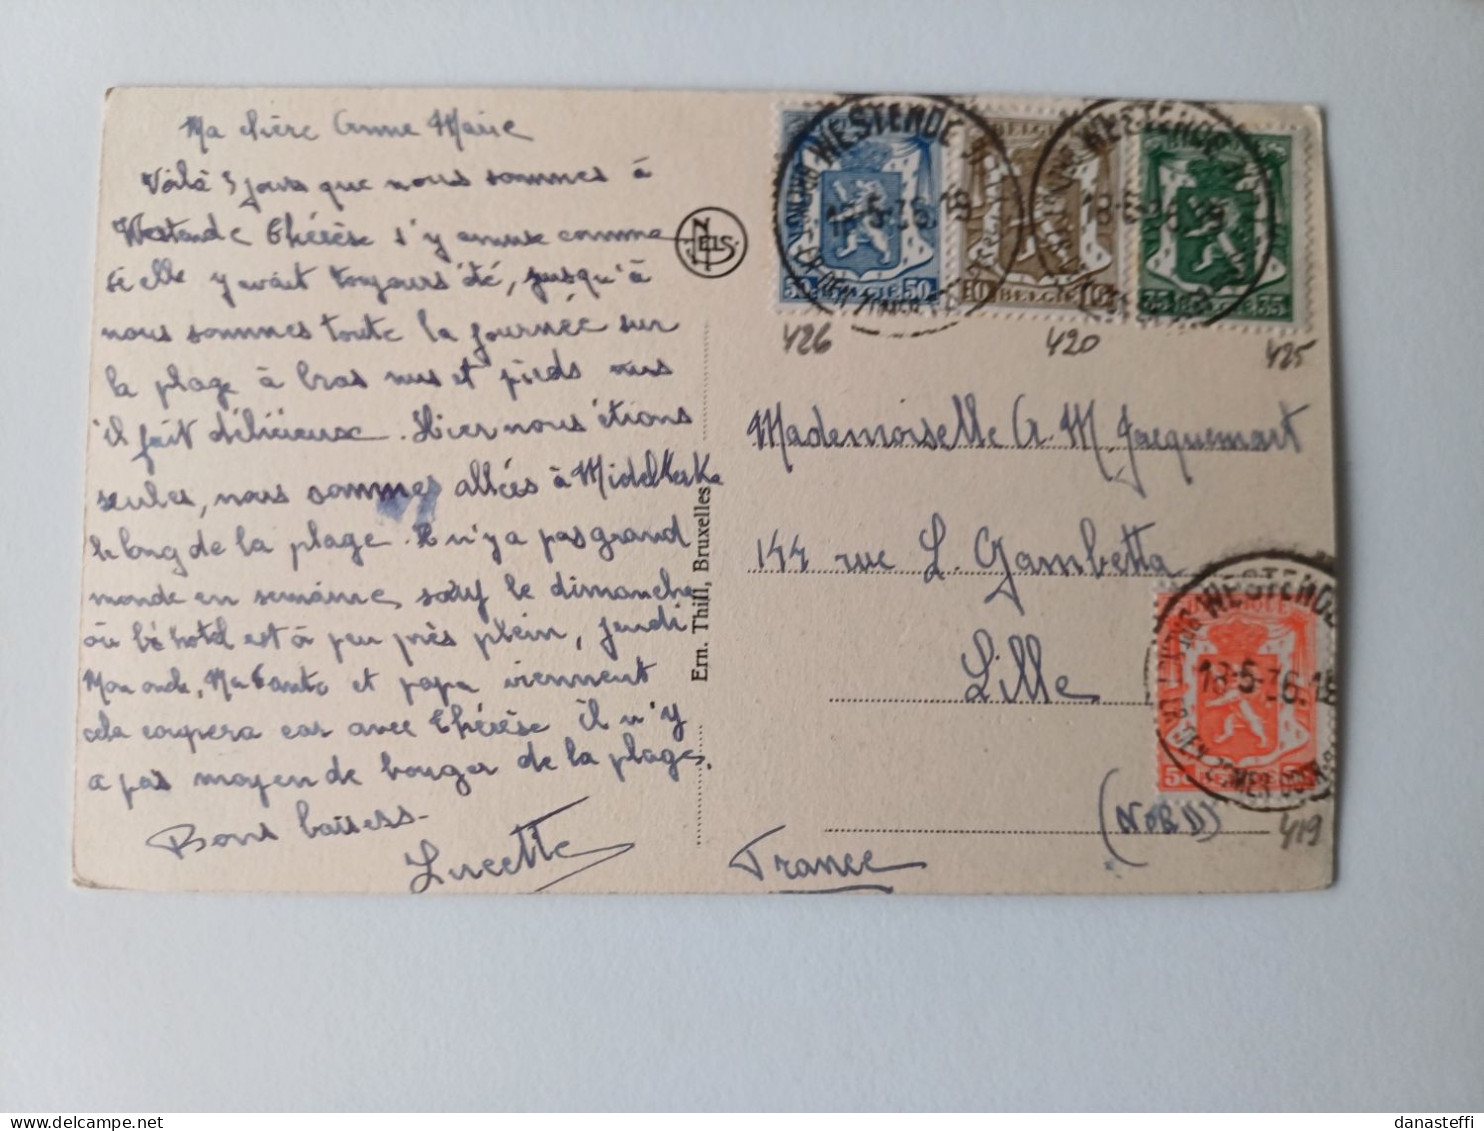 Ma chère Anne Marie
Voilà 5 jours que nous sommes à
Westende Thérèse s'y amuse comme
si elle y avait toujours été, jusqu'à
nous sommes toute la journée sur
la plage à bras nus et pieds nus
il fait délicieux. Hier nous étions
seules, nous sommes allées à Midelkerke
le long de la plage. Il n'y a pas grand
monde en semaine sauf le dimanche
où l'hôtel est à peu près plein, jeudi
Mon oncle, Ma tante et papa viennent
cela coupera car avec Thérèse il n'y
a pas moyen de bouger de la plage.
Bons baisers
Lucette
NELS
Ern. Thill, Bruxelles
WESTENDE
18-5-36. 19
50 BELGIE 50
10 BELGIE 10
WESTENDE
35 BELGIE 35
426
420
425
Mademoiselle A. M. Jacquemart
144 rue L. Gambetta
Lille
WESTENDE
18-5-36. 18
(NORD)
419
France
danasteffi